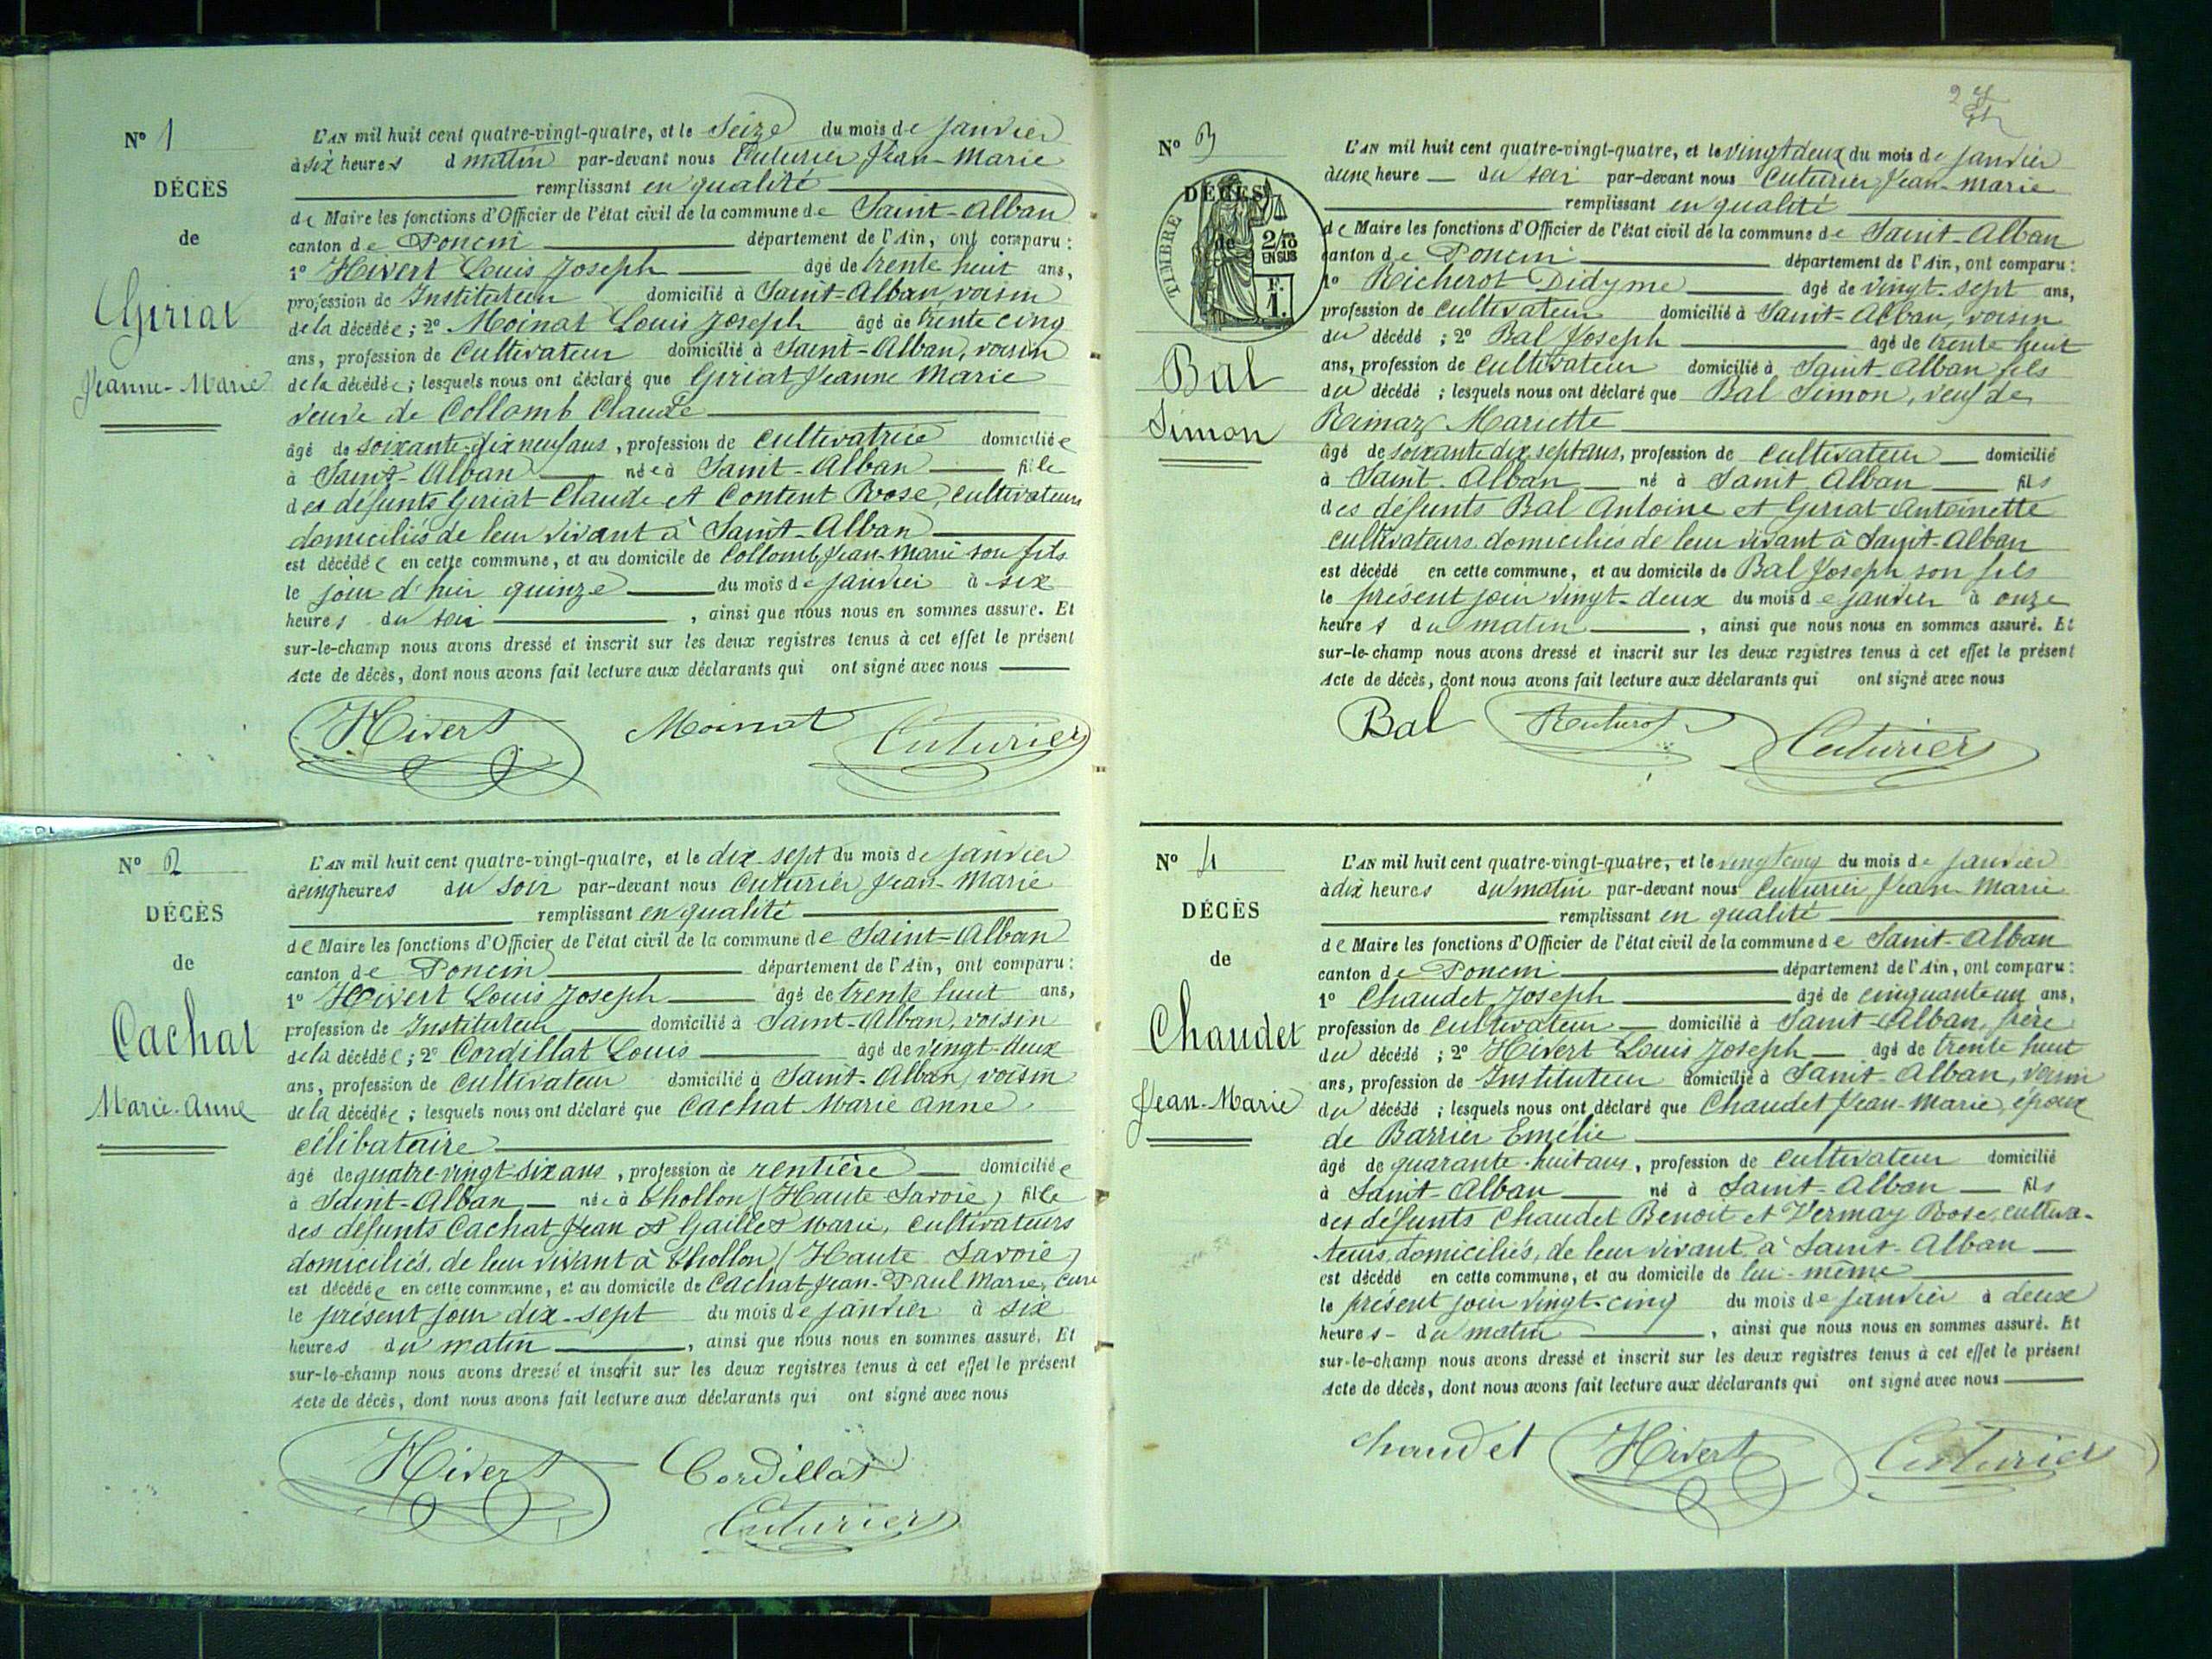 N° 1
DÉCÈS
de
Giriat
Jeanne-Marie
L'AN mil huit cent quatre-vingt-quatre, et le Seize du mois de janvier
à six heures d matin par-devant nous Cuturier Jean-Marie
remplissant en qualité
de Maire les fonctions d'Officier de l'état civil de la commune de Saint-Alban
canton de Poncin département de l'Ain, ont comparu :
1° Hivert Louis Joseph âgé de trente huit ans,
profession de Instituteur domicilié à Saint-Alban, voisin
de la décédée ; 2° Moinat Louis Joseph âgé de trente cinq
ans, profession de Cultivateur domicilié à Saint-Alban, voisin
de la décédée ; lesquels nous ont déclaré que Giriat Jeanne Marie
veuve de Collomb Claude
âgé de soixante-dix neuf ans, profession de cultivatrice domiciliée
à Saint-Alban née à Saint-Alban fille
des défunts Giriat Claude et Content Rose, cultivateurs
domiciliés de leur vivant à Saint-Alban
est décédée en cette commune, et au domicile de Collomb Jean-Marie son fils
le jour d'hier quinze du mois de janvier à six
heures du soir, ainsi que nous nous en sommes assuré. Et
sur-le-champ nous avons dressé et inscrit sur les deux registres tenus à cet effet le présent
Acte de décès, dont nous avons fait lecture aux déclarants qui ont signé avec nous
Hivert Moinat Cuturier
N° 2
DÉCÈS
de
Cachat
Marie-Anne
L'AN mil huit cent quatre-vingt-quatre, et le dix-sept du mois de janvier
à cinq heures du soir par-devant nous Cuturier Jean-Marie
remplissant en qualité
de Maire les fonctions d'Officier de l'état civil de la commune de Saint-Alban
canton de Poncin département de l'Ain, ont comparu :
1° Hivert Louis Joseph âgé de trente huit ans,
profession de Instituteur domicilié à Saint-Alban, voisin
de la décédée ; 2° Cordillat Louis âgé de vingt-deux
ans, profession de cultivateur domicilié à Saint-Alban, voisin
de la décédée ; lesquels nous ont déclaré que Cachat Marie Anne,
célibataire
âgé de quatre-vingt-six ans, profession de rentière domiciliée
à Saint-Alban née à Thollon (Haute-Savoie) fille
des défunts Cachat Jean et Gaillet Marie, cultivateurs
domiciliés, de leur vivant à Thollon (Haute Savoie)
est décédée en cette commune, et au domicile de Cachat Jean-Paul Marie, curé
le présent jour dix-sept du mois de janvier à six
heures du matin, ainsi que nous nous en sommes assuré. Et
sur-le-champ nous avons dressé et inscrit sur les deux registres tenus à cet effet le présent
Acte de décès, dont nous avons fait lecture aux déclarants qui ont signé avec nous
Hivert Cordillat
Cuturier
N° 3
DÉCÈS
de
TIMBRE
2/10
EN SUS
F.
1.
Bal
Simon
L'AN mil huit cent quatre-vingt-quatre, et le vingt deux du mois de janvier
à une heure du soir par-devant nous Cuturier Jean-Marie
remplissant en qualité
de Maire les fonctions d'Officier de l'état civil de la commune de Saint-Alban
canton de Poncin département de l'Ain, ont comparu :
1° Richerot Didyme âgé de vingt-sept ans,
profession de cultivateur domicilié à Saint-Alban, voisin
du décédé ; 2° Bal Joseph âgé de trente huit
ans, profession de cultivateur domicilié à Saint-Alban fils
du décédé ; lesquels nous ont déclaré que Bal Simon, veuf de
Reinaz Mariette
âgé de soixante dix sept ans, profession de cultivateur domicilié
à Saint-Alban né à Saint Alban fils
des défunts Bal Antoine et Giriat Antoinette
cultivateurs domiciliés de leur vivant à Saint-Alban
est décédé en cette commune, et au domicile de Bal Joseph son fils
le présent jour vingt-deux du mois de janvier à onze
heures du matin, ainsi que nous nous en sommes assuré. Et
sur-le-champ nous avons dressé et inscrit sur les deux registres tenus à cet effet le présent
Acte de décès, dont nous avons fait lecture aux déclarants qui ont signé avec nous
Bal Richerot Cuturier
N° 4
DÉCÈS
de
Chaudet
Jean-Marie
L'AN mil huit cent quatre-vingt-quatre, et le vingt cinq du mois de janvier
à dix heures du matin par-devant nous Cuturier Jean Marie
remplissant en qualité
de Maire les fonctions d'Officier de l'état civil de la commune de Saint-Alban
canton de Poncin département de l'Ain, ont comparu :
1° Chaudet Joseph âgé de cinquante un ans,
profession de cultivateur domicilié à Saint-Alban, frère
du décédé ; 2° Hivert Louis Joseph âgé de trente huit
ans, profession de Instituteur domicilié à Saint-Alban, voisin
du décédé ; lesquels nous ont déclaré que Chaudet Jean-Marie, époux
de Barrier Emélie
âgé de quarante-huit ans, profession de cultivateur domicilié
à Saint-Alban né à Saint-Alban fils
des défunts Chaudet Benoit et Vermay Rose, cultiva-
teurs, domiciliés, de leur vivant à Saint-Alban
est décédé en cette commune, et au domicile de lui-même
le présent jour vingt-cinq du mois de janvier à deux
heures du matin, ainsi que nous nous en sommes assuré. Et
sur-le-champ nous avons dressé et inscrit sur les deux registres tenus à cet effet le présent
Acte de décès, dont nous avons fait lecture aux déclarants qui ont signé avec nous
Chaudet Hivert Cuturier